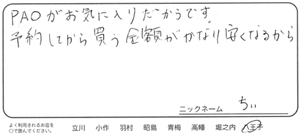 PAOがお気に入りだからです
予約してから買う金額がかなり安くなるから
ニックネーム ちぃ
よく利用されるお店を
○で囲んでください。 立川 小作 羽村 昭島 青梅 高幡 堀之内 八王子